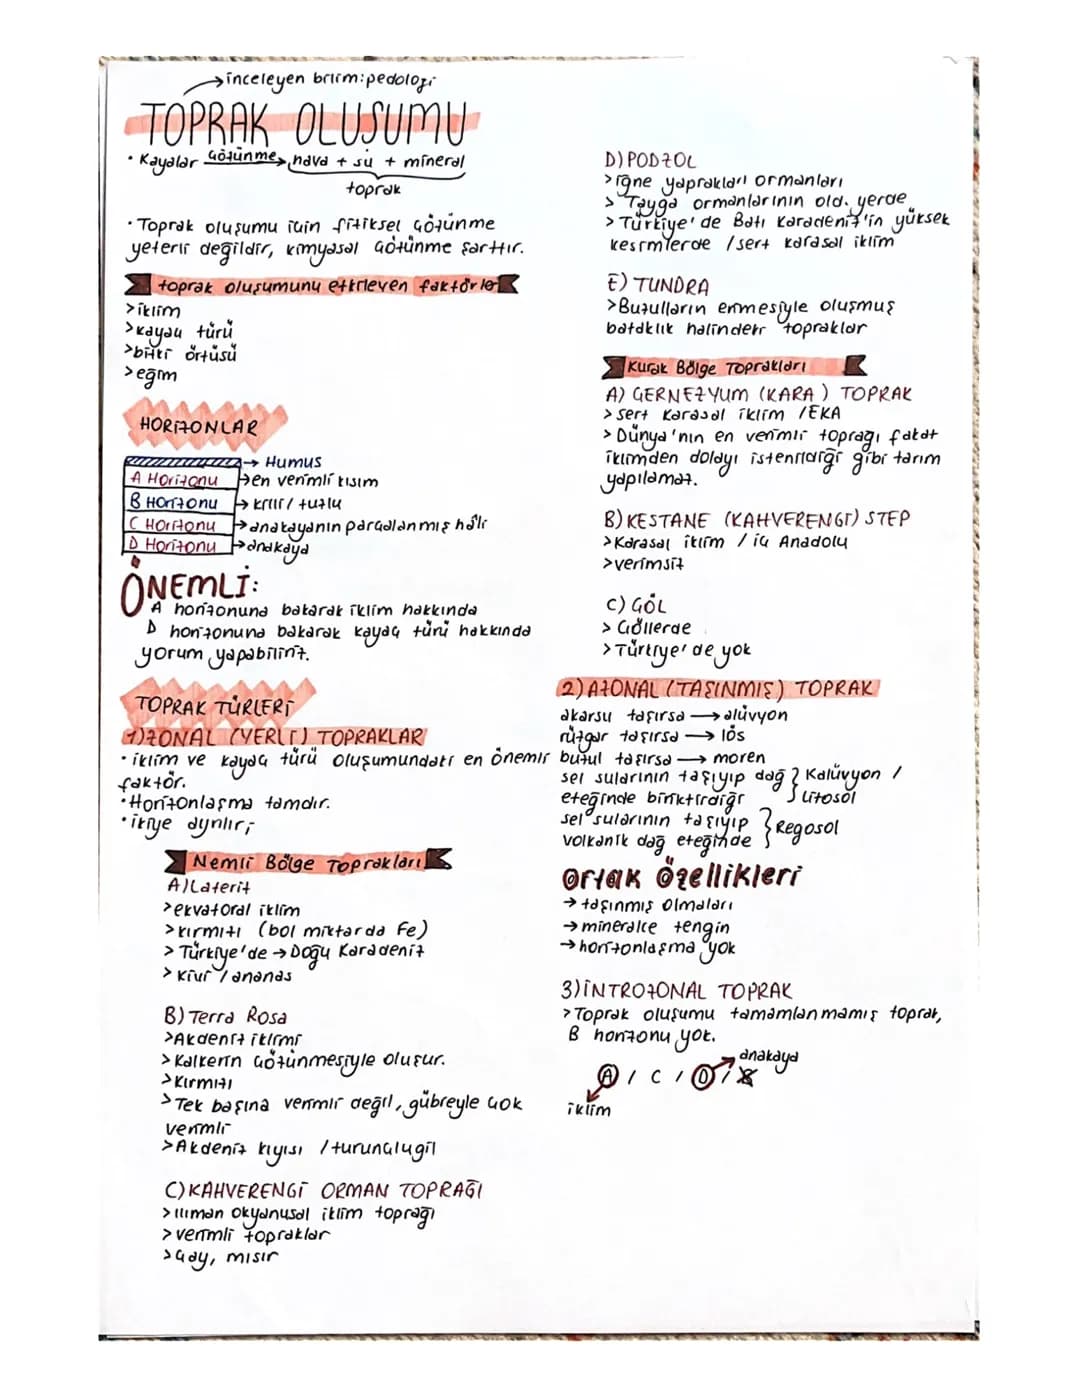 →inceleyen bilim:pedoloji
TOPRAK OLUŞUMU
• Kayalar çözünme→ hava + su + mineral
toprak
• Toprak oluşumu için fiziksel çözünme
yeterli değildir, kimyasal çözünme şarttır.
toprak oluşumunu etkileyen faktörler
>iklim
>kayaç türü
>bitki örtüsü
>eğim
HORİZONLAR
→ Humus
A Horizonu →en verimli kısım
B Horizonu → killi / tuzlu
C Horizonu →anakayanın parçalanmış hâli
D Horizonu →anakaya
ÖNEMLİ:
A horizonuna bakarak iklim hakkında
D horizonuna bakarak kayaç türü hakkında
yorum yapabiliriz.
TOPRAK TÜRLERİ
1)ZONAL (YERLİ) TOPRAKLAR
• iklim ve kayaç türü oluşumundaki en önemli
faktör.
•Horizonlaşma tamdır.
•ikiye ayrılır;
Nemli Bölge Toprakları
A)Laterit
>ekvatoral iklim
>kırmızı (bol miktarda Fe)
> Türkiye'de → Doğu Karadeniz
> Kivi / ananas
B) Terra Rosa
>Akdeniz iklimi
> Kalkerin çözünmesiyle oluşur.
>Kırmızı
>Tek başına verimli değil, gübreyle çok
verimli
>Akdeniz kıyısı / turunçlugil
C)KAHVERENGİ ORMAN TOPRAĞI
>ılıman okyanusal iklim toprağı
>verimli topraklar
>Çay, mısır
D) PODZOL
>iğne yapraklı ormanları
> Tayga ormanlarının old. yerde
>Türkiye'de Batı Karadeniz'in yüksek
kesimlerde / sert karasal iklim
E) TUNDRA
>Buzulların erimesiyle oluşmuş
bataklık halindeki topraklar
Kurak Bölge Toprakları
A) ÇERNEZYUM (KARA) TOPRAK
> sert karasal iklim / EKA
> Dünya'nın en verimli toprağı fakat
iklimden dolayı istenildiği gibi tarım
yapılamaz.
B) KESTANE (KAHVERENGİ) STEP
>Karasal iklim / iç Anadolu
>verimsiz
C) ÇÖL
> Çöllerde
>Türkiye'de yok
2) AZONAL (TAŞINMIŞ) TOPRAK
akarsu taşırsa → alüvyon
rüzgar taşırsa → lös
buzul taşırsa → moren
sel sularının taşıyıp dağ } Kalüvyon /
eteğinde biriktirdiği Litosol
sel sularının taşıyıp } Regosol
volkanik dağ eteğinde
Ortak özellikleri
→ taşınmış olmaları
→ mineralce zengin
→horizonlaşma yok
3)İNTROZONAL TOPRAK
>Toprak oluşumu tamamlanmamış toprak,
B horizonu yok.
anakaya
A / C / D / B
iklim